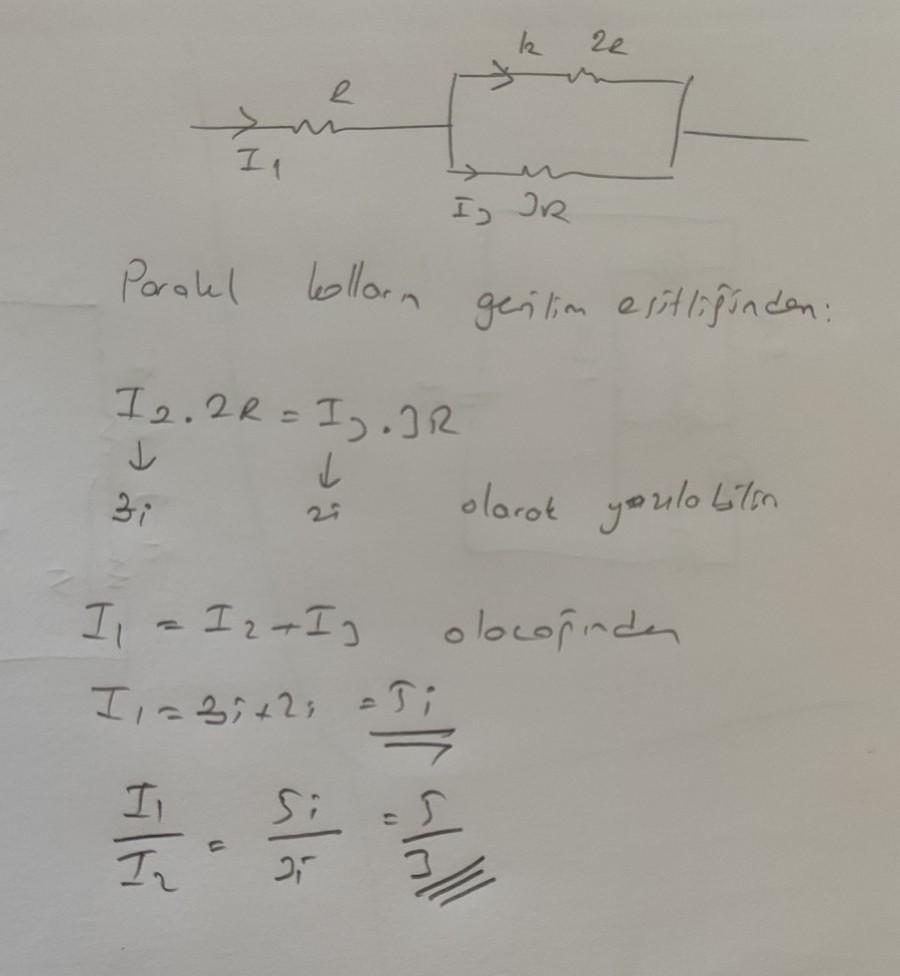 R
I₁
k 2R
I₃ 3R
Paralel kolların gerilim eşitliğinden:
I₂.2R = I₃.3R
↓ ↓
3i 2i olarak yazılabilir
I₁ = I₂+I₃ olacağından
I₁ = 3i+2i = 5i
I₁/I₂ = 5i/3i = 5/3